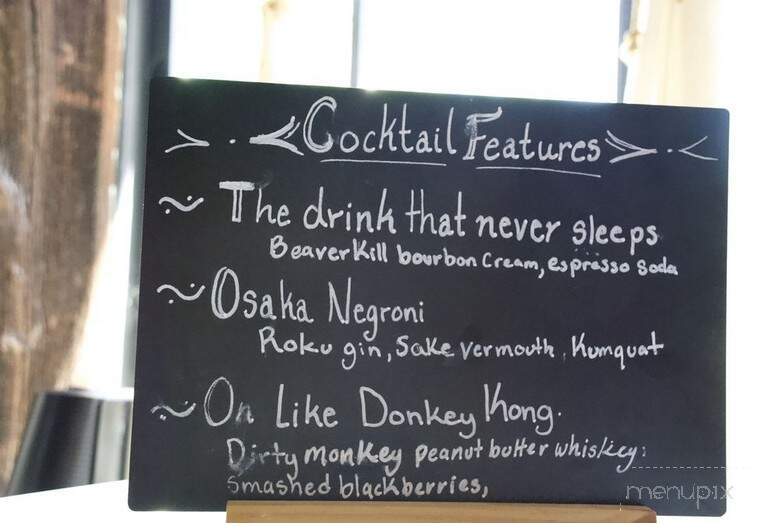 Cocktail Features
The drink that never sleeps
BeaverKill bourbon Cream, espresso soda
Osaka Negroni
Roku gin, Sake vermouth, Kumquat
On Like Donkey Kong.
Dirty monkey peanut butter whiskey:
Smashed blackberries,
menupix